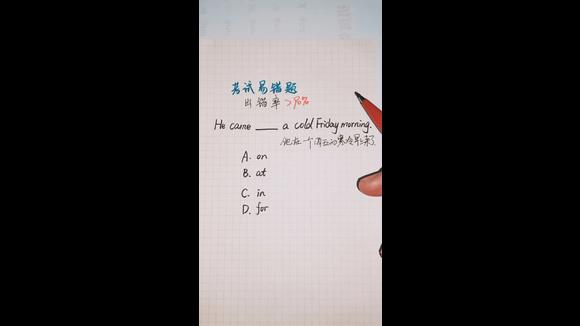 考试易错题
出错率>90%
He came ___ a cold Friday morning.
他在一个周五的寒冷早上来了
A. on
B. at
C. in
D. for